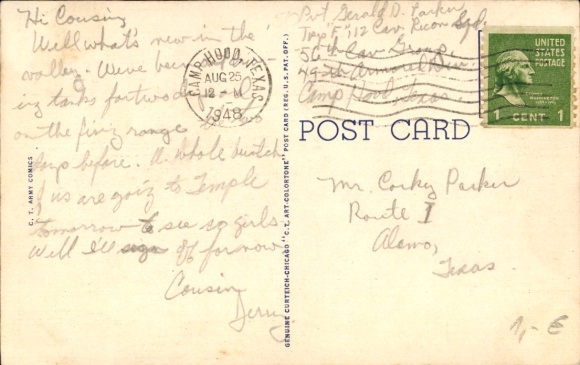 Hi Cousin
Well what's new in the
valley. We've been
ing tanks for two
on the firing range
days before. A whole
of us are going to Temple
tomorrow to see so girls.
Well I'll off for now
Cousin
Jerry
C. T. ARMY COMICS
GENUINE CURTEICH-CHICAGO "C.T. ART-COLORTONE" POST CARD (REG. U.S. PAT. OFF.)
CAMP HOOD, TEXAS
AUG 25
12 - M
1948
Pvt. Gerald D. Parker
Trp F, 112 Cav. Recon Sqd.
56th Cav. Group
49th Armored Div
Camp Hood, Texas
UNITED
STATES
POSTAGE
WASHINGTON
1 CENT 1
POST CARD
Mr. Corky Parker
Route I
Alamo,
Texas.